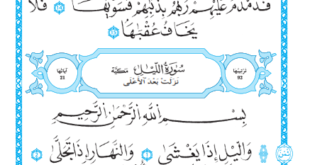 فَدَمْدَمَ عَلَيْهِمْ رَبُّهُم بِذَنۢبِهِمْ فَسَوَّىٰهَا ۝١٤ فَلَا
يَخَافُ عُقْبَٰهَا ۝١٥
ترتيبها ٩٢ سُورَةُ اللَّيْلِ مَكِّيَّة آياتها ٢١
نزلت بَعْدَ الأعْلَى
بِسْمِ ٱللَّهِ ٱلرَّحْمَٰنِ ٱلرَّحِيمِ
وَٱلَّيْلِ إِذَا يَغْشَىٰ ۝١ وَٱلنَّهَارِ إِذَا تَجَلَّىٰ